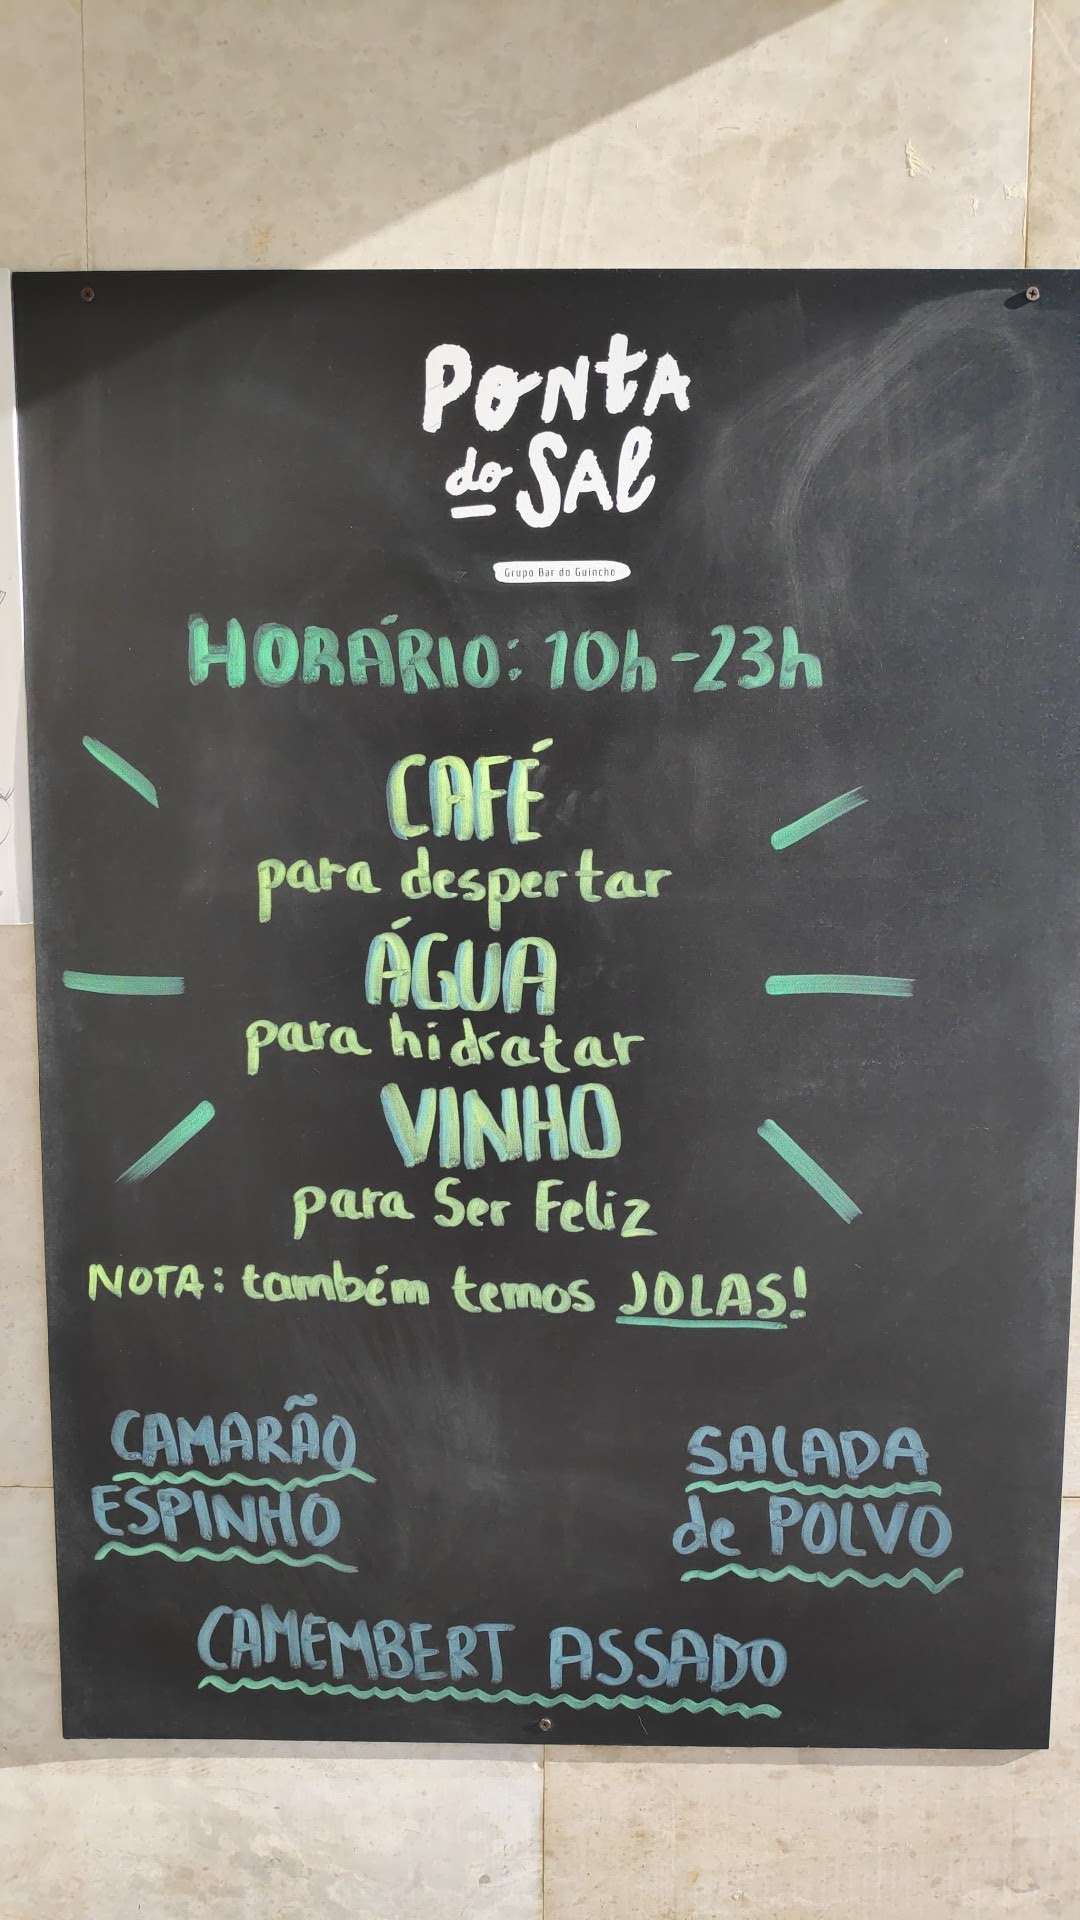 PONTA
do SAl
Grupo Bar do Guincho
HORÁRIO: 10h-23h
CAFÉ
para despertar
ÁGUA
para hidratar
VINHO
para Ser Feliz
NOTA: também temos JOLAS!
CAMARÃO
ESPINHO
SALADA
de POLVO
CAMEMBERT ASSADO